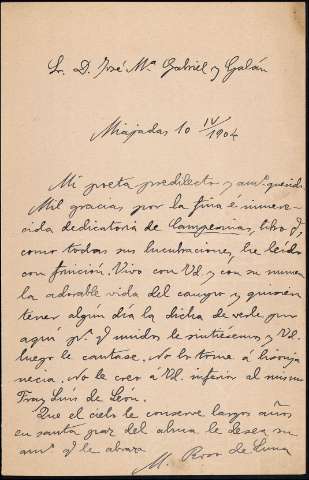 Sr. D. José Mª Gabriel y Galán
Miajadas 10 IV/1904
Mi poeta predilecto y amº querido
Mil gracias por la fina é inmere-
cida dedicatoria de Campesinas, libro q.,
como todas sus lucubraciones, he leído
con fruición. Vivo con Vd. y con su numen
la adorable vida del campo y quisiera
tener algún día la dicha de verle por
aquí pª. q. unidos la sintiésemos y Vd.
luego la cantase. No lo tome á lisonja
necia. No le creo á Vd. inferior al mismo
Fray Luis de León.
Que el cielo le conserve largos años
en santa paz del alma le desea su
amº q. le abraza
M. Roso de Luna